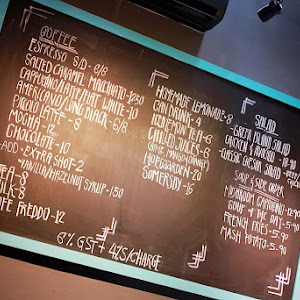 COFFEE
ESPRESSO S/D - 6/8
SALTED CARAMEL MACCHIATO - 12.50
CAPPUCCINO/LATTE/FLAT WHITE - 10
AMERICANO/LONG BLACK - 6/8
PICCOLO LATTE - 8
MOCHA - 12
CHOCOLATE - 10
ADD - EXTRA SHOT - 2
- VANILLA/HAZELNUT SYRUP - 1.50
TEA - 8
FREDDO - 12
6% GST + 4% S/CHARGE
HOMEMADE LEMONADE - 8
CAN DRINK - 4
ICE LEMON TEA - 6
CHILLED JUICES - 6
HOEGAARDEN - 20
SOMERSBY - 16
SALAD
- GREEN
- CHICKEN &
- CLASSIC CAESAR SALAD
SOUP & SIDE ORDER
MUSHROOM CAPPUCCINO - 12.90
SOUP OF THE DAY - 5.90
FRENCH FRIES - 5.90
MASH POTATO - 5.90